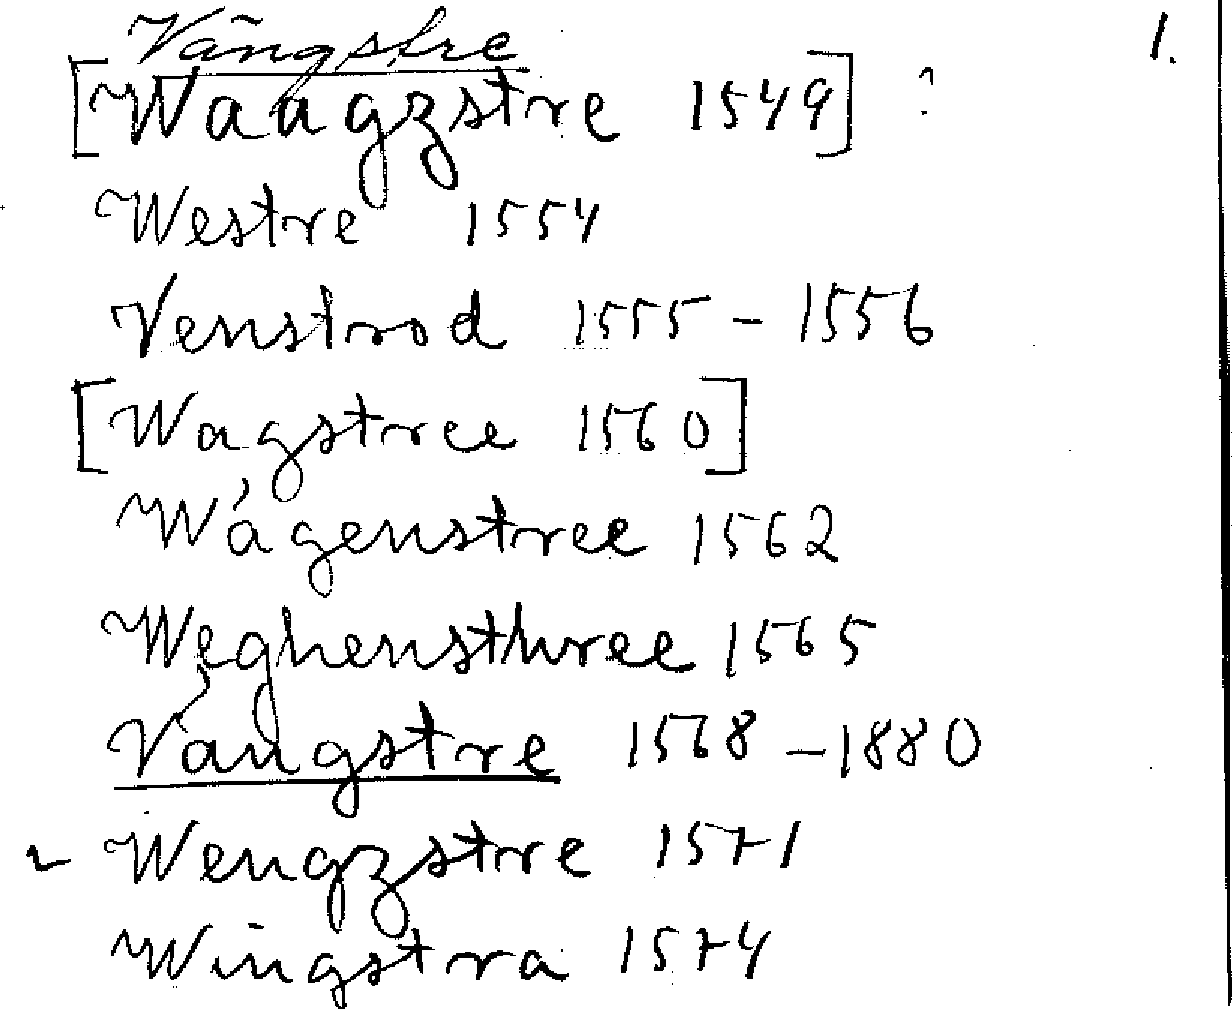 Vängstre 1.
[Waagzstre 1549] ?
Westre 1554
Venstrod 1555-1556
[Wagstree 1560]
Wágenstree 1562
Weghensthree 1565
Vängstre 1568-1880
Wengzstre 1571
Wingstra 1574